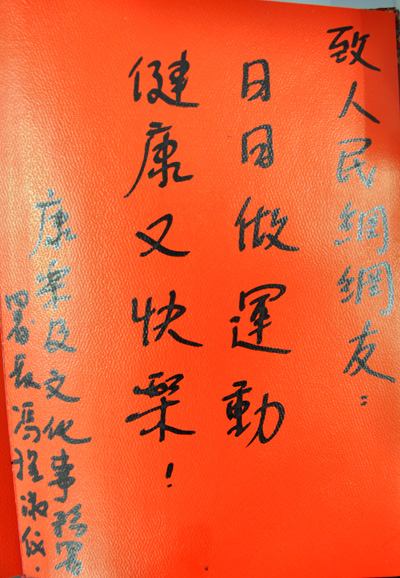 致人民網網友：
日日做運動
健康又快樂！
康樂及文化事務署
署長馮程淑儀．